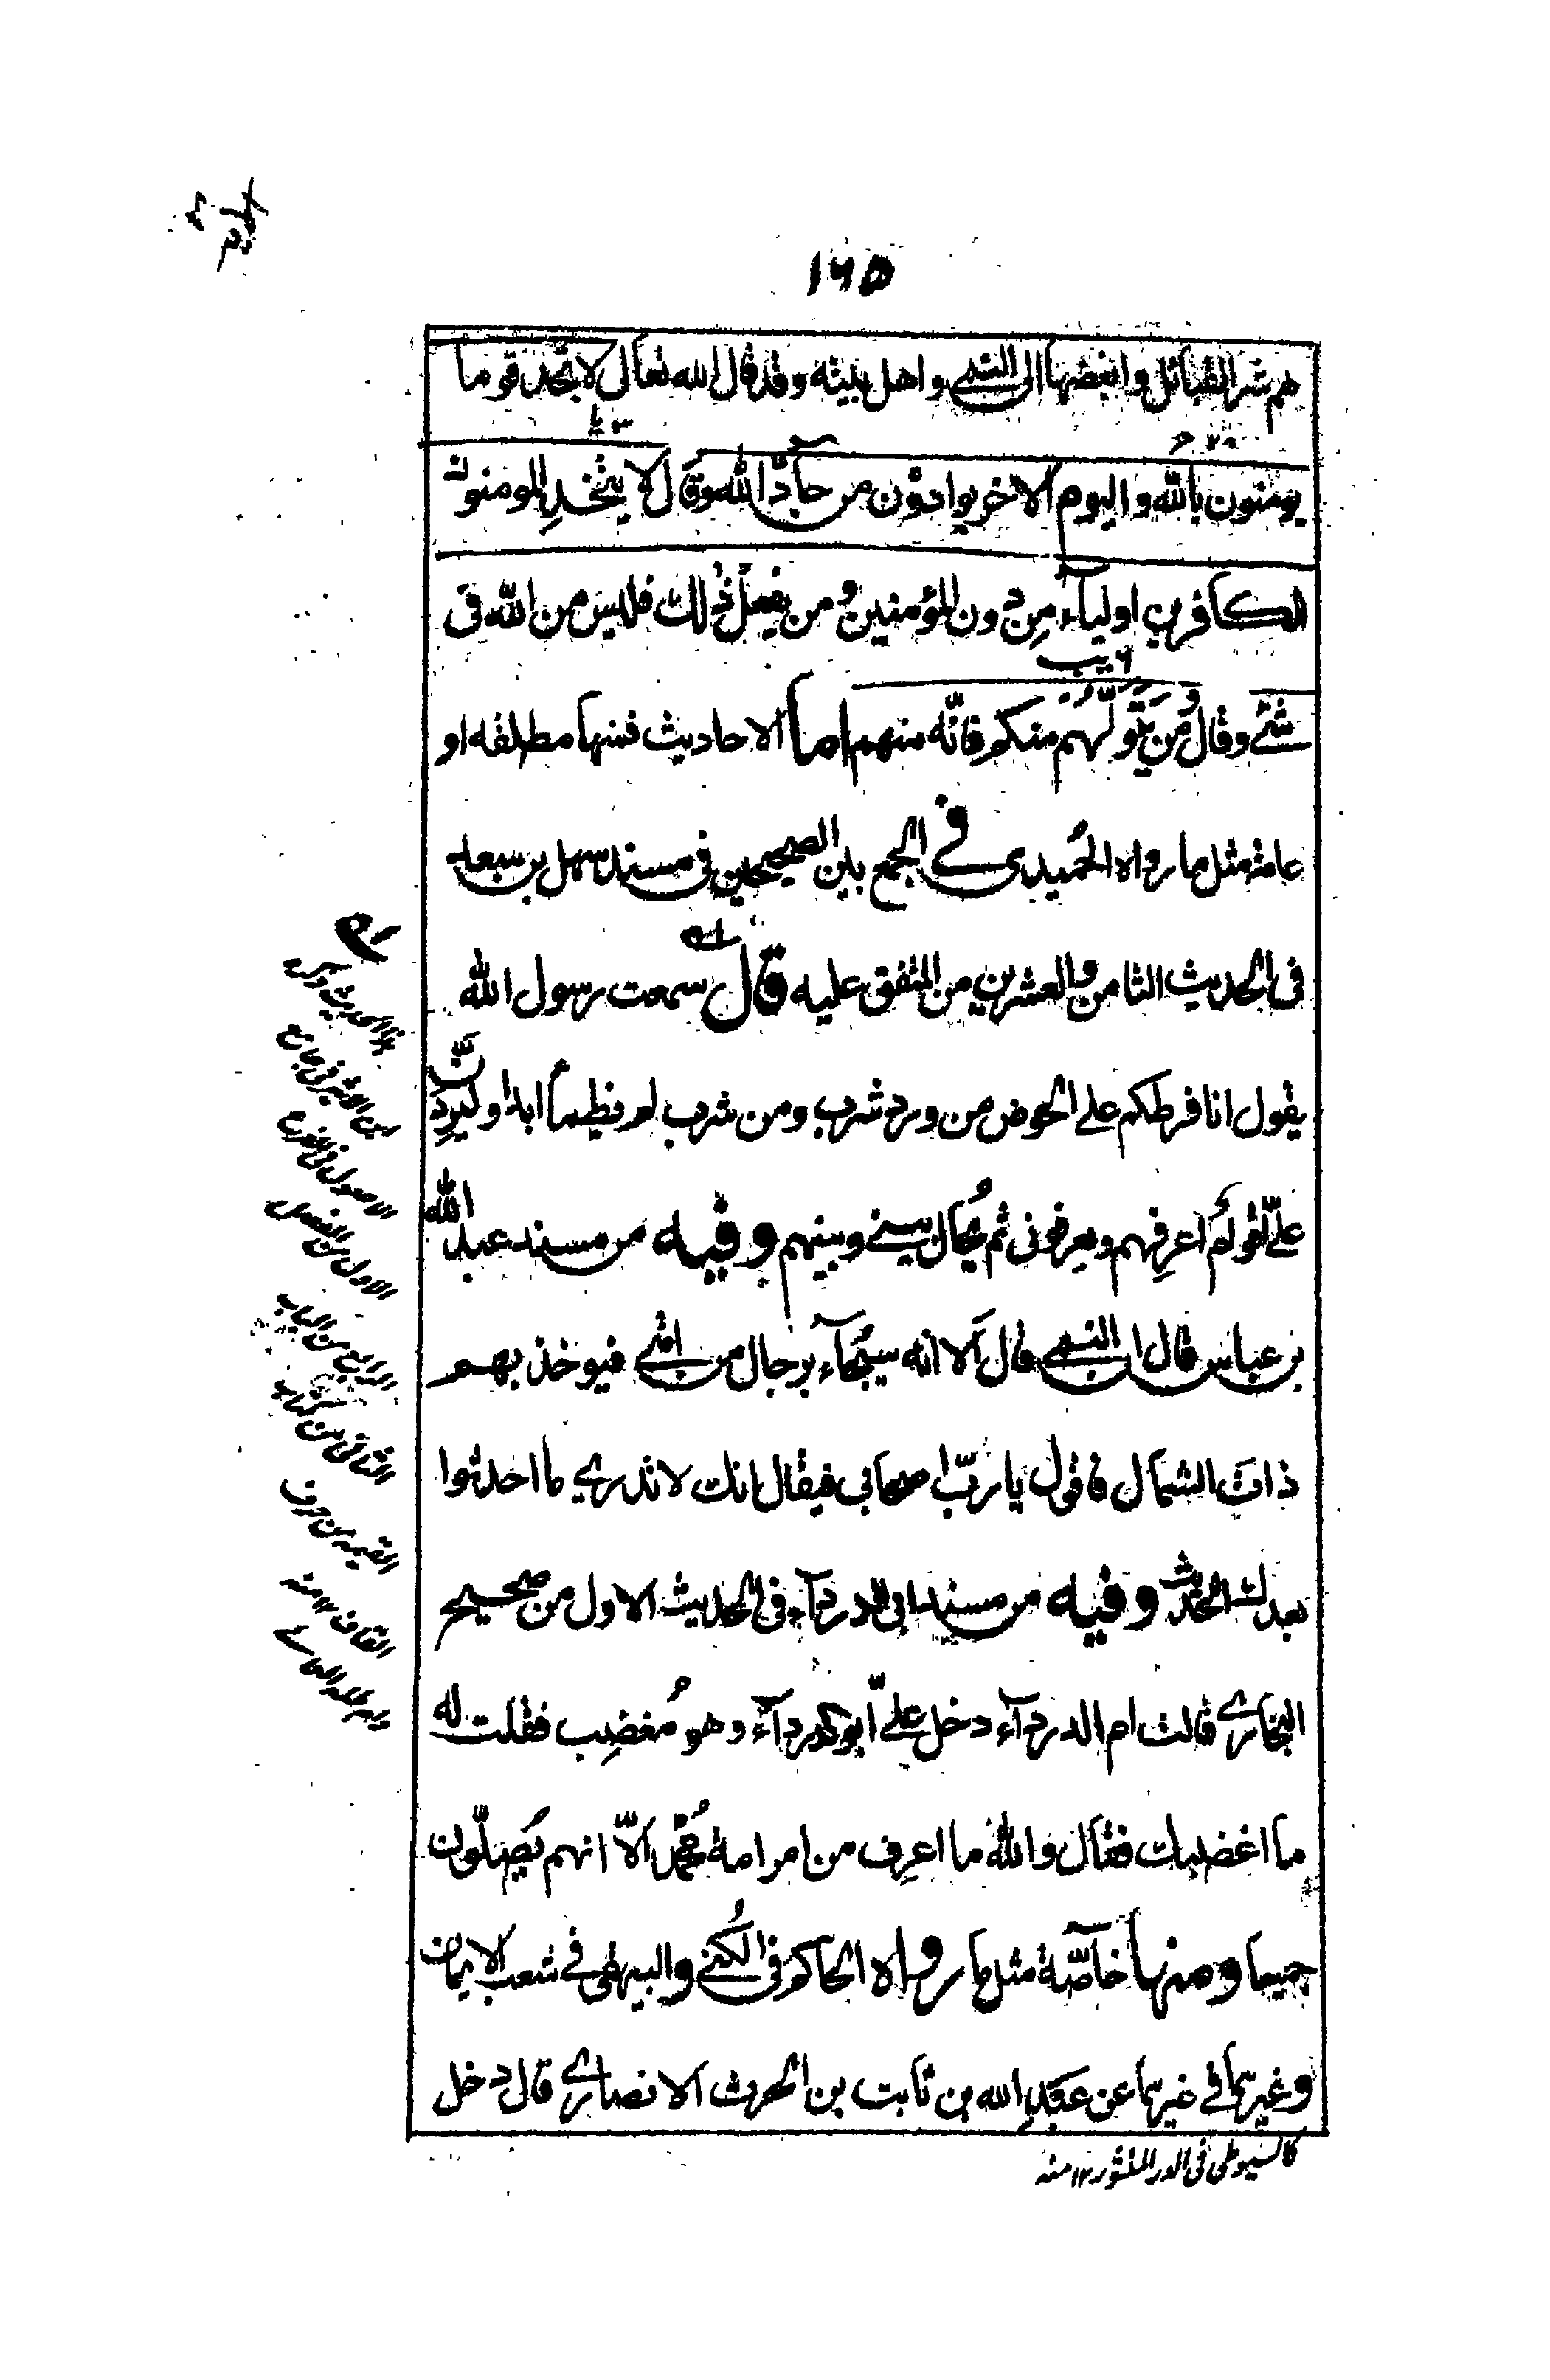 ١٦٥
هم شر القبائل وابغضها الى النبي واهل بيته وقد قال الله تعالى لا تجد قوما
يومنون بالله واليوم الاخر يوادّون من حآدّ الله وقال لا يتّخذِ المومنون
الكافرين اولياء مِن دون المؤمنين ومن يفعل ذٰلك فليس من الله فى
شئے وقال ومَن يَتَوَلَّهُم منكم فانّه منهم اما الاحاديث فمنها مطلقه او
عامة مثل ما رواه الحُميدى فے الجمع بين الصحيحين فى مسند سهل بن سعد
فى الحديث الثامن والعشرين من المتفق عليه قال سمعت رسول الله
يقول انا فرطكم على الحوض من ورد شرب ومن شرب لم يظمأ ابدا وليردنّ
علىّ اقوام اعرِفهم ويعرفونى ثم يُحال بينے وبينهم وفيه من مسند عبد الله
بن عباس قال ان النبى قال ألا انه سيُجآء برجال من امتے فيوخذ بهم
ذات الشمال فاقول يا ربّ اصحابى فيقال انك لا تدرى ما احدثوا
بعدك الحديث وفيه من مسند ابى الدرداء فى الحديث الاول من صحيح
البخارى قالت ام الدرداء دخل علىّ ابو الدرداء وهو مُغضِب فقلت له
ما اغضبك فقال والله ما اعرِف من امر امة محُمّد الّا انهم يُصلّون
جميعا ومنها خآصّة مثل ما رواه الحاكم فى الكُنے والبيهقى فے شعب الايمان
وغيرهما فے غيرهما عن عبد الله بن ثابت بن الحرث الانصارى قال دخل
كالسيوطى فى الدر المنثور ١٢ منه
هذا الحديث ذكره
ابن الاثير فى جامع
الاصول فى الفرع
الاول من الفصل
الرابع من الباب
الثانى من كتاب
القيمه من حرف
القاف ١٢ منه